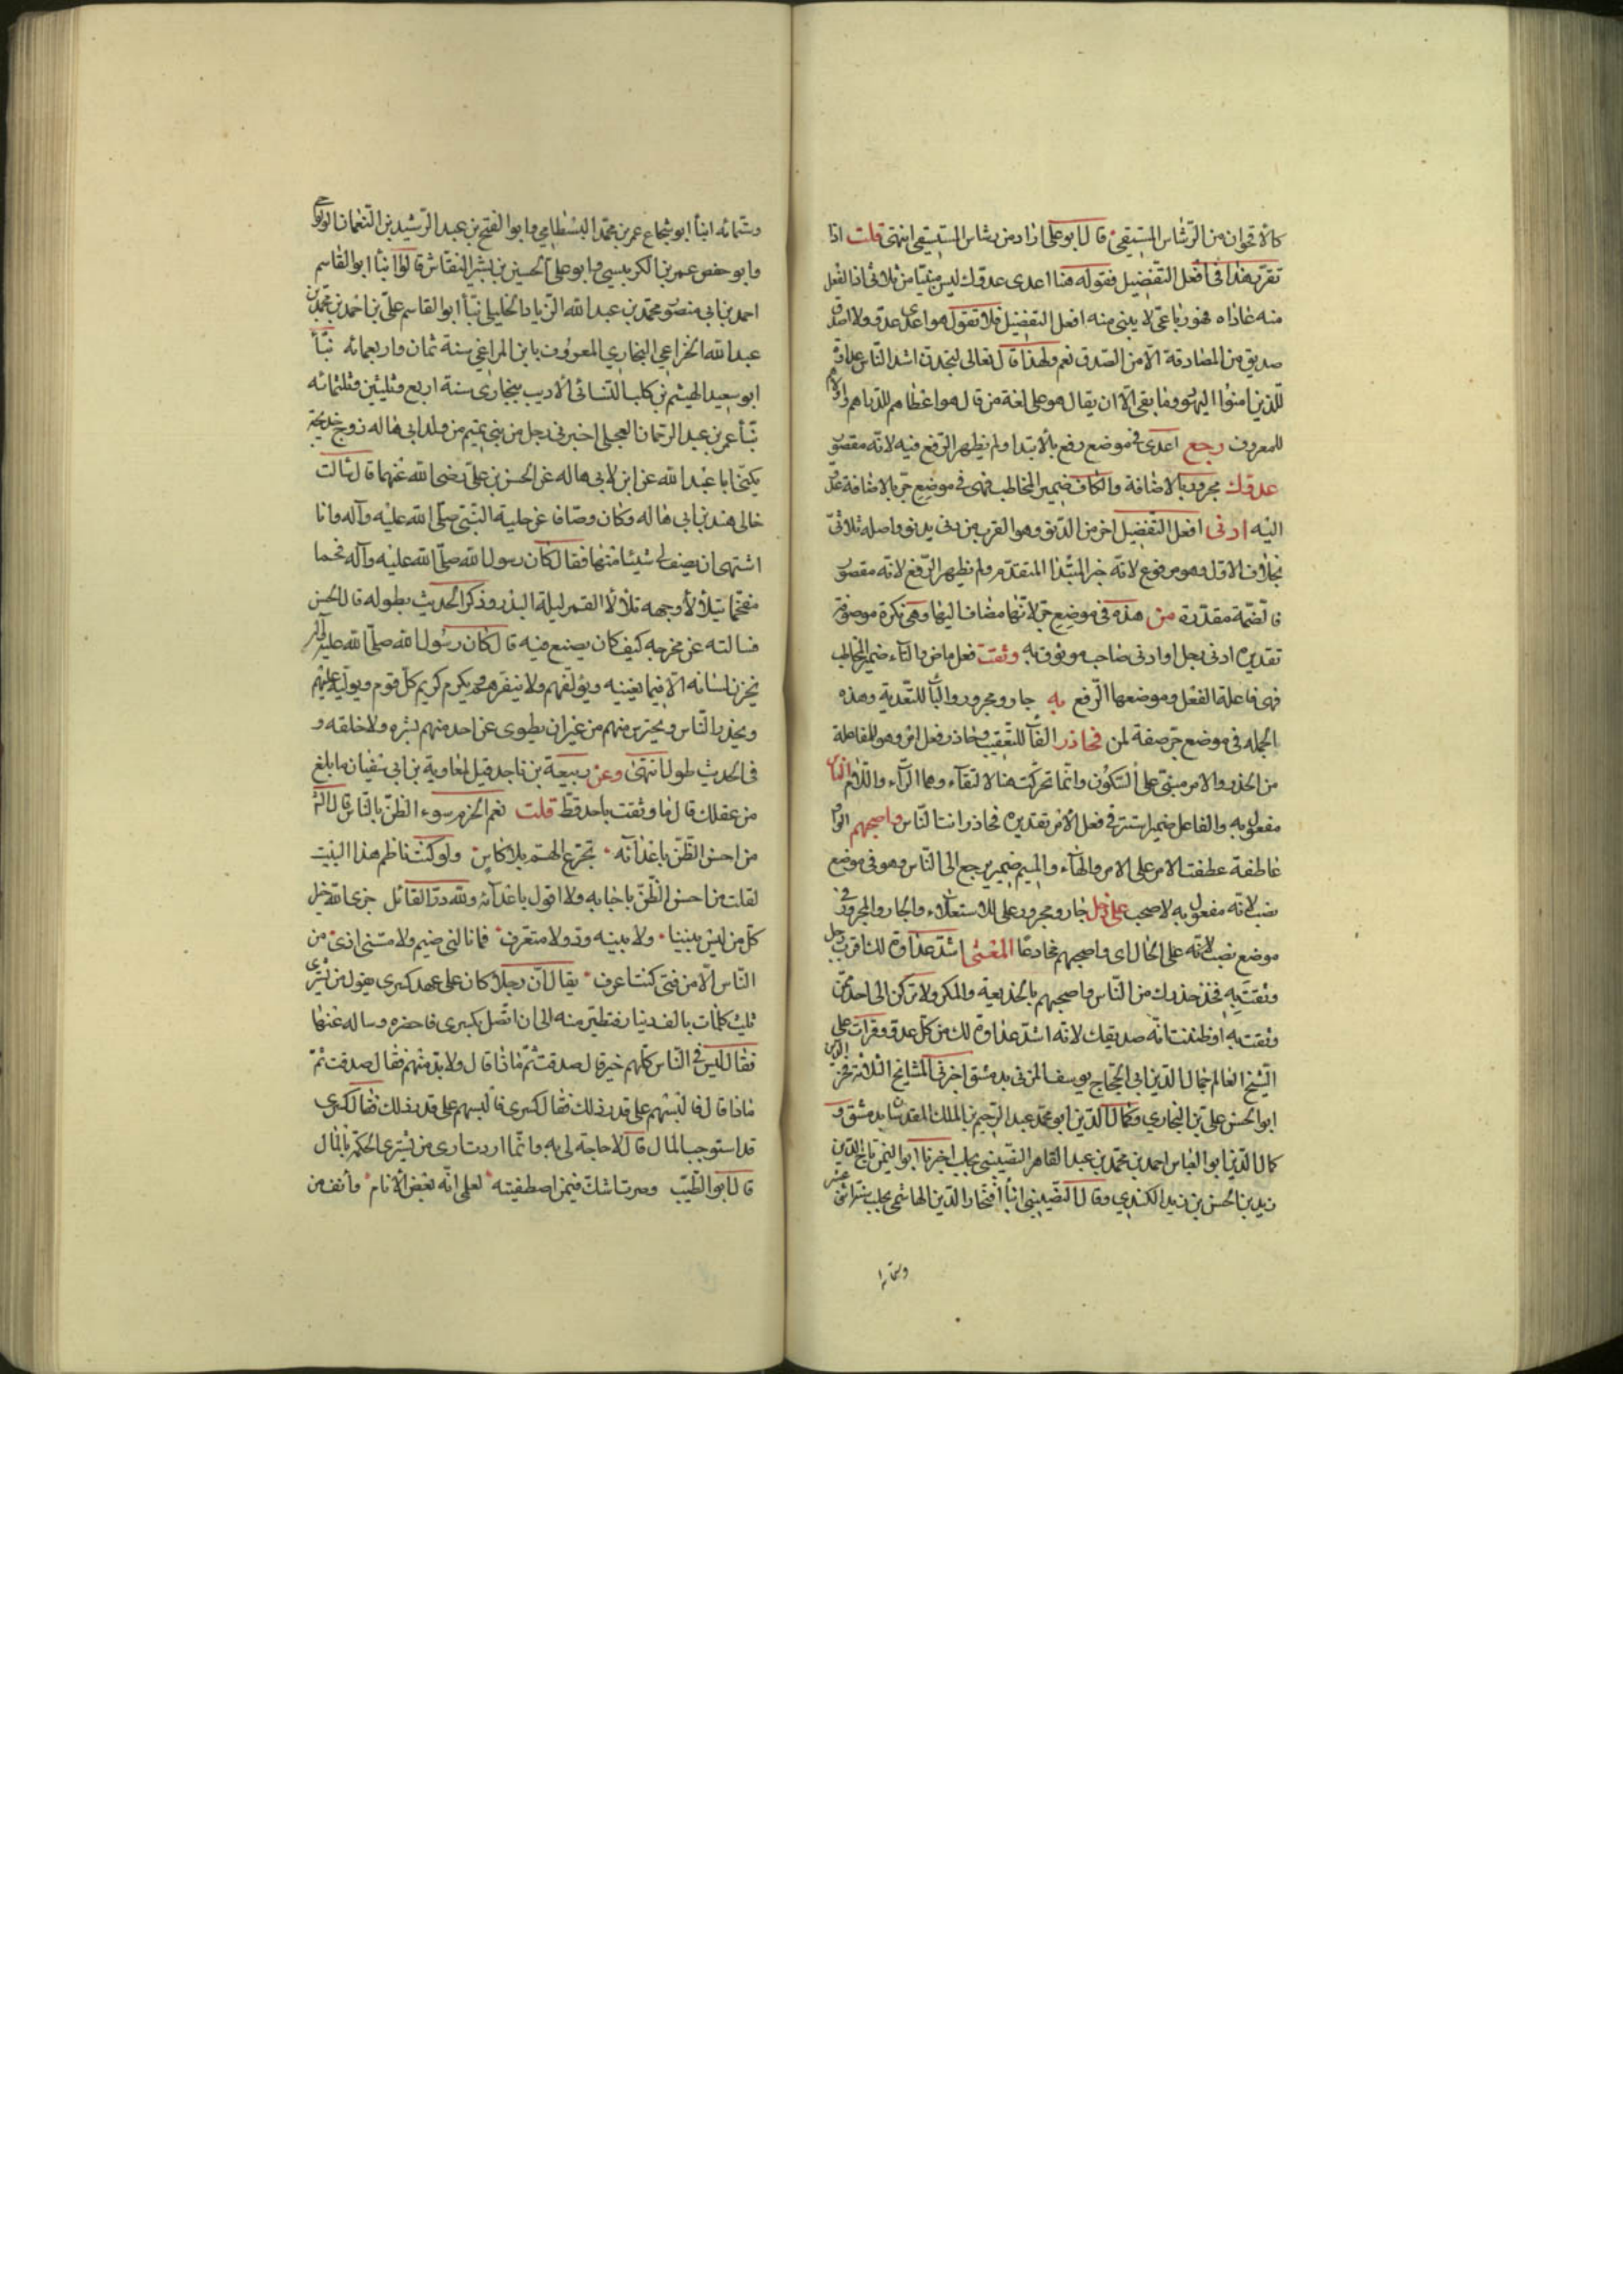 كالاقحوان من الرشاش المستقي قال ابو على اراد من رشاش المستقي انتهى قلت اذا
تقرر هذا فى افعل التفضيل فقوله هنا اعدى عدوك ليس مبنيا من ثلاثى انما الفعل
منه عاداه فهو رباعى لا يبنى منه افعل التفضيل فلا تقول هو اعدى عدو ولا اصدق
صديق من المصادقة الا من الصدق نعم ولهذا قال تعالى لتجدن اشد الناس عداوة
للذين امنوا اليهود وما بقى الا ان يقال هو على لغة من قال هو اعطاهم للدراهم واولاهم
للمعروف رجع اعدى فى موضع رفع بالابتدا ولم يظهر الرفع فيه لانه مقصور
عدوك مجرور بالاضافة والكاف ضمير المخاطب فهى فى موضع جر بالاضافة
اليه ادنى افعل التفضيل اخر من الدنو وهو القرب من دنى يدنو واصله ثلاثى
بخلاف الاول وهو مرفوع لانه خبر المبتدا المتقدم ولم يظهر الرفع لانه مقصور
فالضمة مقدرة من هذه فى موضع جر لانها مضاف اليها وهى نكرة موصوفة
تقديره ادنى رجل او ادنى صاحب موثوق به وثقت فعل ماض والتاء ضمير المخاطب
فهى فاعلة الفعل وموضعها الرفع به جار ومجرور والباء للتعدية وهذه
الجملة فى موضع جر صفة لمن فحاذر الفاء للتعقيب وحاذر فعل امر وهو المفاعلة
من الحذر والامر مبنى على السكون وانما تحركت هنا لالتقاء وهما الراء واللام الناس
مفعول به والفاعل ضمير استتر فى فعل الامر تقديره فحاذر انت الناس واصحبهم الواو
عاطفة عطفت الامر على الامر والهاء والميم ضمير يرجع الى الناس وهو فى موضع
نصب لانه مفعول به لاصحب على دخل جار ومجرور على للاستعلاء والجار والمجرور فى
موضع نصب لانه على الحال اى واصحبهم مخادعا المعنى اشد عداوة لك اقرب رجل
وثقت به فخذ حذرك من الناس واصحبهم بالخديعة والمكر ولا تركن الى احد ممن
وثقت به او ظننت انه صديقك لانه اشد عداوة لك من كل عدو وقرات على
الشيخ العالم جمال الدين ابى الحجاج يوسف المزى بدمشق اخبرنى المشايخ الثلاثة فخر الدين
ابو الحسن على بن البخاري وكمال الدين ابو محمد عبد الرحيم بن الملك المقدسيان بدمشق و
كمال الدين ابو العباس احمد بن محمد بن عبد القاهر النصيبى بحلب اخبرنا ابو اليمن تاج الدين
زيد بن الحسن بن زيد الكندي وقال النصيبى انبأ افتخار الدين الهاشمى بحلب سنة اثنى عشر
وستمائه انبأ ابو شجاع عمر بن محمد البسطامي وابو الفتح بن عبد الرشيد بن النعمان الولوالجى
وابو حفص عمر بن الكرابيسي وابو على الحسين بن بشير النقاش قالوا انبأ ابو القاسم
احمد بن ابى منصور محمد بن عبد الله الزيادا الخليلى نبأ ابو القاسم على بن احمد بن محمد بن
عبد الله الخزاعي البخاري المعروف بابن المراغي سنة ثمان واربعمائه نبأ
ابو سعيد الهيثم بن كليب الشاشى الاديب ببخارى سنة اربع وثلثين وثلثمائه
نبأ عمر بن عبد الرحمان العجلى اخبرنى رجل من بنى تميم من ولد ابى هاله زوج خديجة
يكنى ابا عبد الله عن ابن لابى هاله عن الحسن بن على رضى الله عنهما قال سالت
خالى هند بن ابى هاله وكان وصافا عن حلية النبى صلى الله عليه وآله وانا
اشتهى ان يصف لى شيئا منها فقال كان رسول الله صلى الله عليه وآله فخما
مفخما يتلألأ وجهه تلألأ القمر ليلة البدر وذكر الحديث بطوله قال الحسن
فسالته عن مخرجه كيف كان يصنع فيه قال كان رسول الله صلى الله عليه وآله
يخزن لسانه الا فيما يعنيه ويؤلفهم ولا ينفرهم ويكرم كريم كل قوم ويوليه عليهم
ويحذر الناس ويحترس منهم من غير ان يطوى عن احد منهم بشره ولا خلقه و
فى الحديث طول انتهى وعن ربيعة بن ناجد قيل لمعاوية بن ابى سفيان ما بلغ
من عقلك قال ما وثقت باحد قط قلت نعم الحزم سوء الظن بالناس قال
من احسن الظن باعدآئه تجرع الهم بلا كاس ولو كنت ناظم هذا البيت
لقلت من احسن الظن باحبابه ولا اقول باعدآئه ولله در القائل جزى الله خيرا
كل من ليس بيننا ولا بينه ود ولا متعرف فما نالنى ضيم ولا مسنى اذى من
الناس الا من فتى كنت اعرف يقال ان رجلا كان على عهد كسرى يقول من يشترى
ثلث كلمات بالف دينار فتطير منه الى ان اتصل بكسرى فاحضره وساله عنها
فقال ليس فى الناس كلهم خير قال صدقت ثم ماذا قال ولا بد منهم فقال صدقت ثم
ماذا قال فالبسهم على قدر ذلك فقال كسرى فالبسهم على قدر ذلك فقال كسرى
قد استوجب المال قال لا حاجة لى به وانما اردت ارى من يشترى الحكمة بالمال
قال ابو الطيب وصرت اشك فيمن اصطفيته لعلمى انه بعض الانام وآنف من